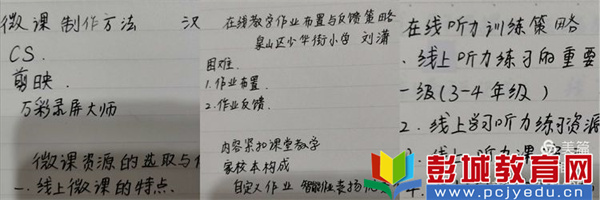 微课制作方法 汉
CS.
剪映.
万彩录屏大师
微课资源的选取与
一.线上微课的特点.
在线教学作业布置与反馈策略
泉山区少华街小学 刘潇
困难.
1.作业布置.
2.作业反馈.
内容紧扣课堂教学
家校本构成
自定义作业 智能作业表扬
在线听力训练策略
.线上听力练习的重要
一级(3-4年级)
2.线上学习听力练习资源
.线上听力课
美篇
彭城教育网
www.pcjyedu.cn